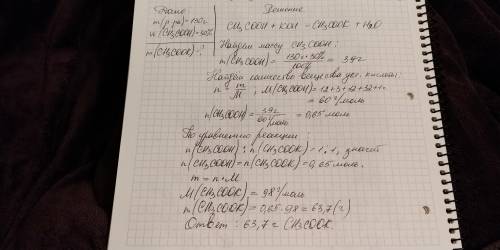 Дано
m(р-ра) = 130г
w(CH₃COOH) = 30%
m(CH₃COOK) - ?
Решение
CH₃COOH + KOH = CH₃COOK + H₂O
Найдём массу CH₃COOH:
m(CH₃COOH) = 130г * 30% / 100% = 39г
Найдём количество вещества укс. кислоты:
n = m/M ; M(CH₃COOH) = 12+3+12+32+1=
= 60 г/моль
n(CH₃COOH) = 39г / 60 г/моль = 0,65 моль
По уравнению реакции:
n(CH₃COOH) : n(CH₃COOK) = 1:1, значит
n(CH₃COOH) = n(CH₃COOK) = 0,65 моль.
m = n * M
M(CH₃COOK) = 98 г/моль
m(CH₃COOK) = 0,65 * 98 = 63,7 (г)
Ответ: 63,7 г CH₃COOK.